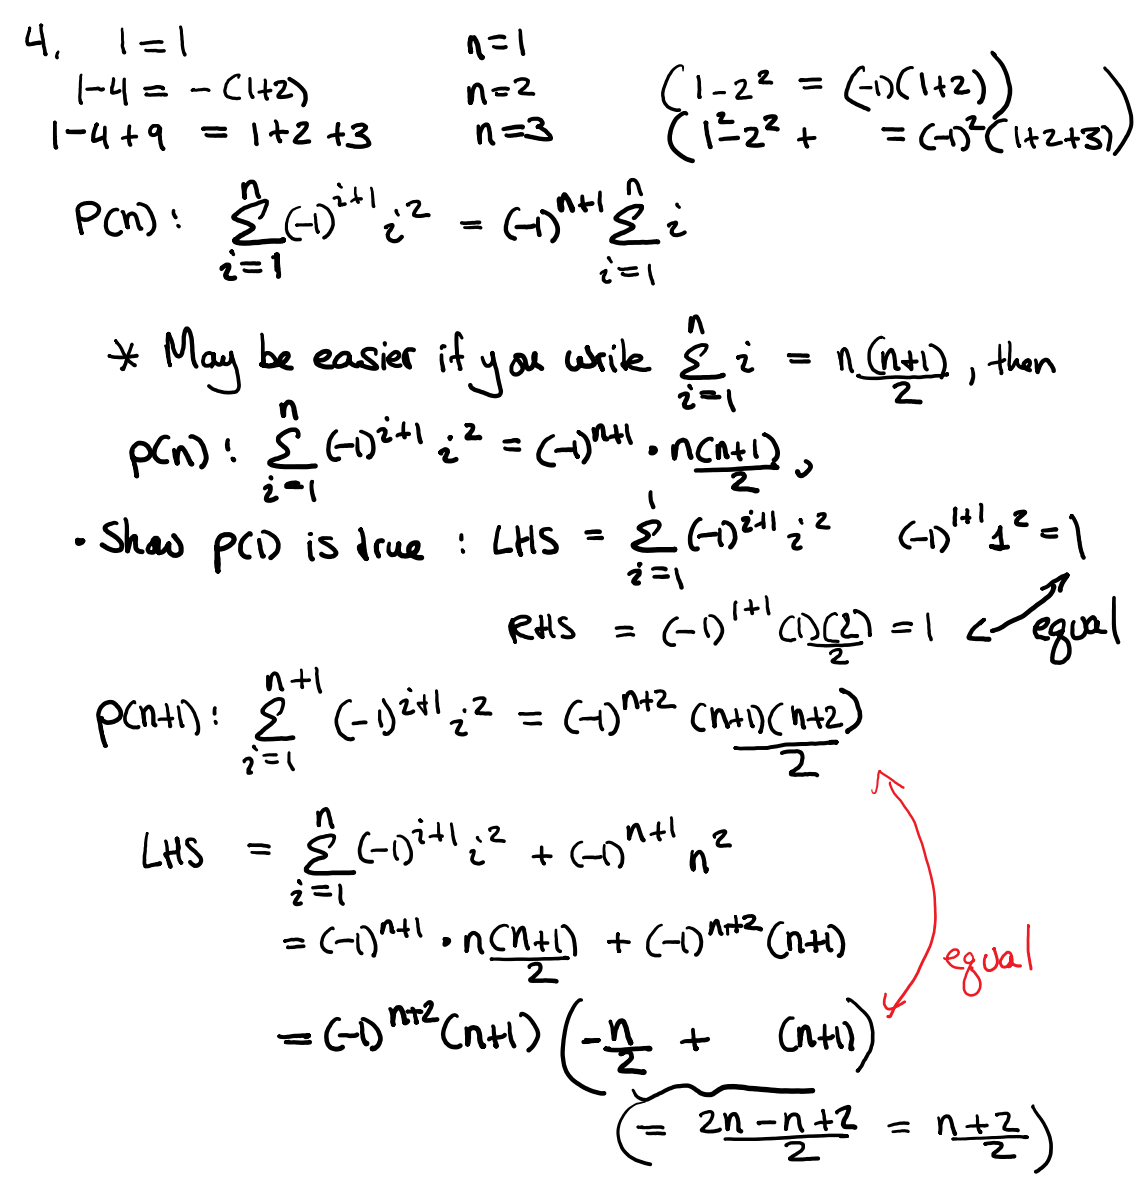 4. 1 = 1 n = 1
1-4 = -(1+2) n = 2 (1-2² = (-1)(1+2))
1-4+9 = 1+2+3 n=3 (1²-2²+ = (-1)²(1+2+3))
P(n): \sum_{i=1}^{n} (-1)^{i+1} i² = (-1)^{n+1} \sum_{i=1}^{n} i
* May be easier if you write \sum_{i=1}^{n} i = \frac{n(n+1)}{2}, then
p(n): \sum_{i=1}^{n} (-1)^{i+1} i² = (-1)^{n+1} · \frac{n(n+1)}{2},
· Show p(1) is true: LHS = \sum_{i=1}^{1} (-1)^{i+1} i² (-1)^{1+1} 1² = 1
RHS = (-1)^{1+1} \frac{(1)(2)}{2} = 1 equal
p(n+1): \sum_{i=1}^{n+1} (-1)^{i+1} i² = (-1)^{n+2} \frac{(n+1)(n+2)}{2}
LHS = \sum_{i=1}^{n} (-1)^{i+1} i² + (-1)^{n+1} n²
= (-1)^{n+1} · \frac{n(n+1)}{2} + (-1)^{n+2} (n+1)
equal
= (-1)^{n+2} (n+1) (-\frac{n}{2} + (n+1))
(= \frac{2n-n+2}{2} = \frac{n+2}{2})